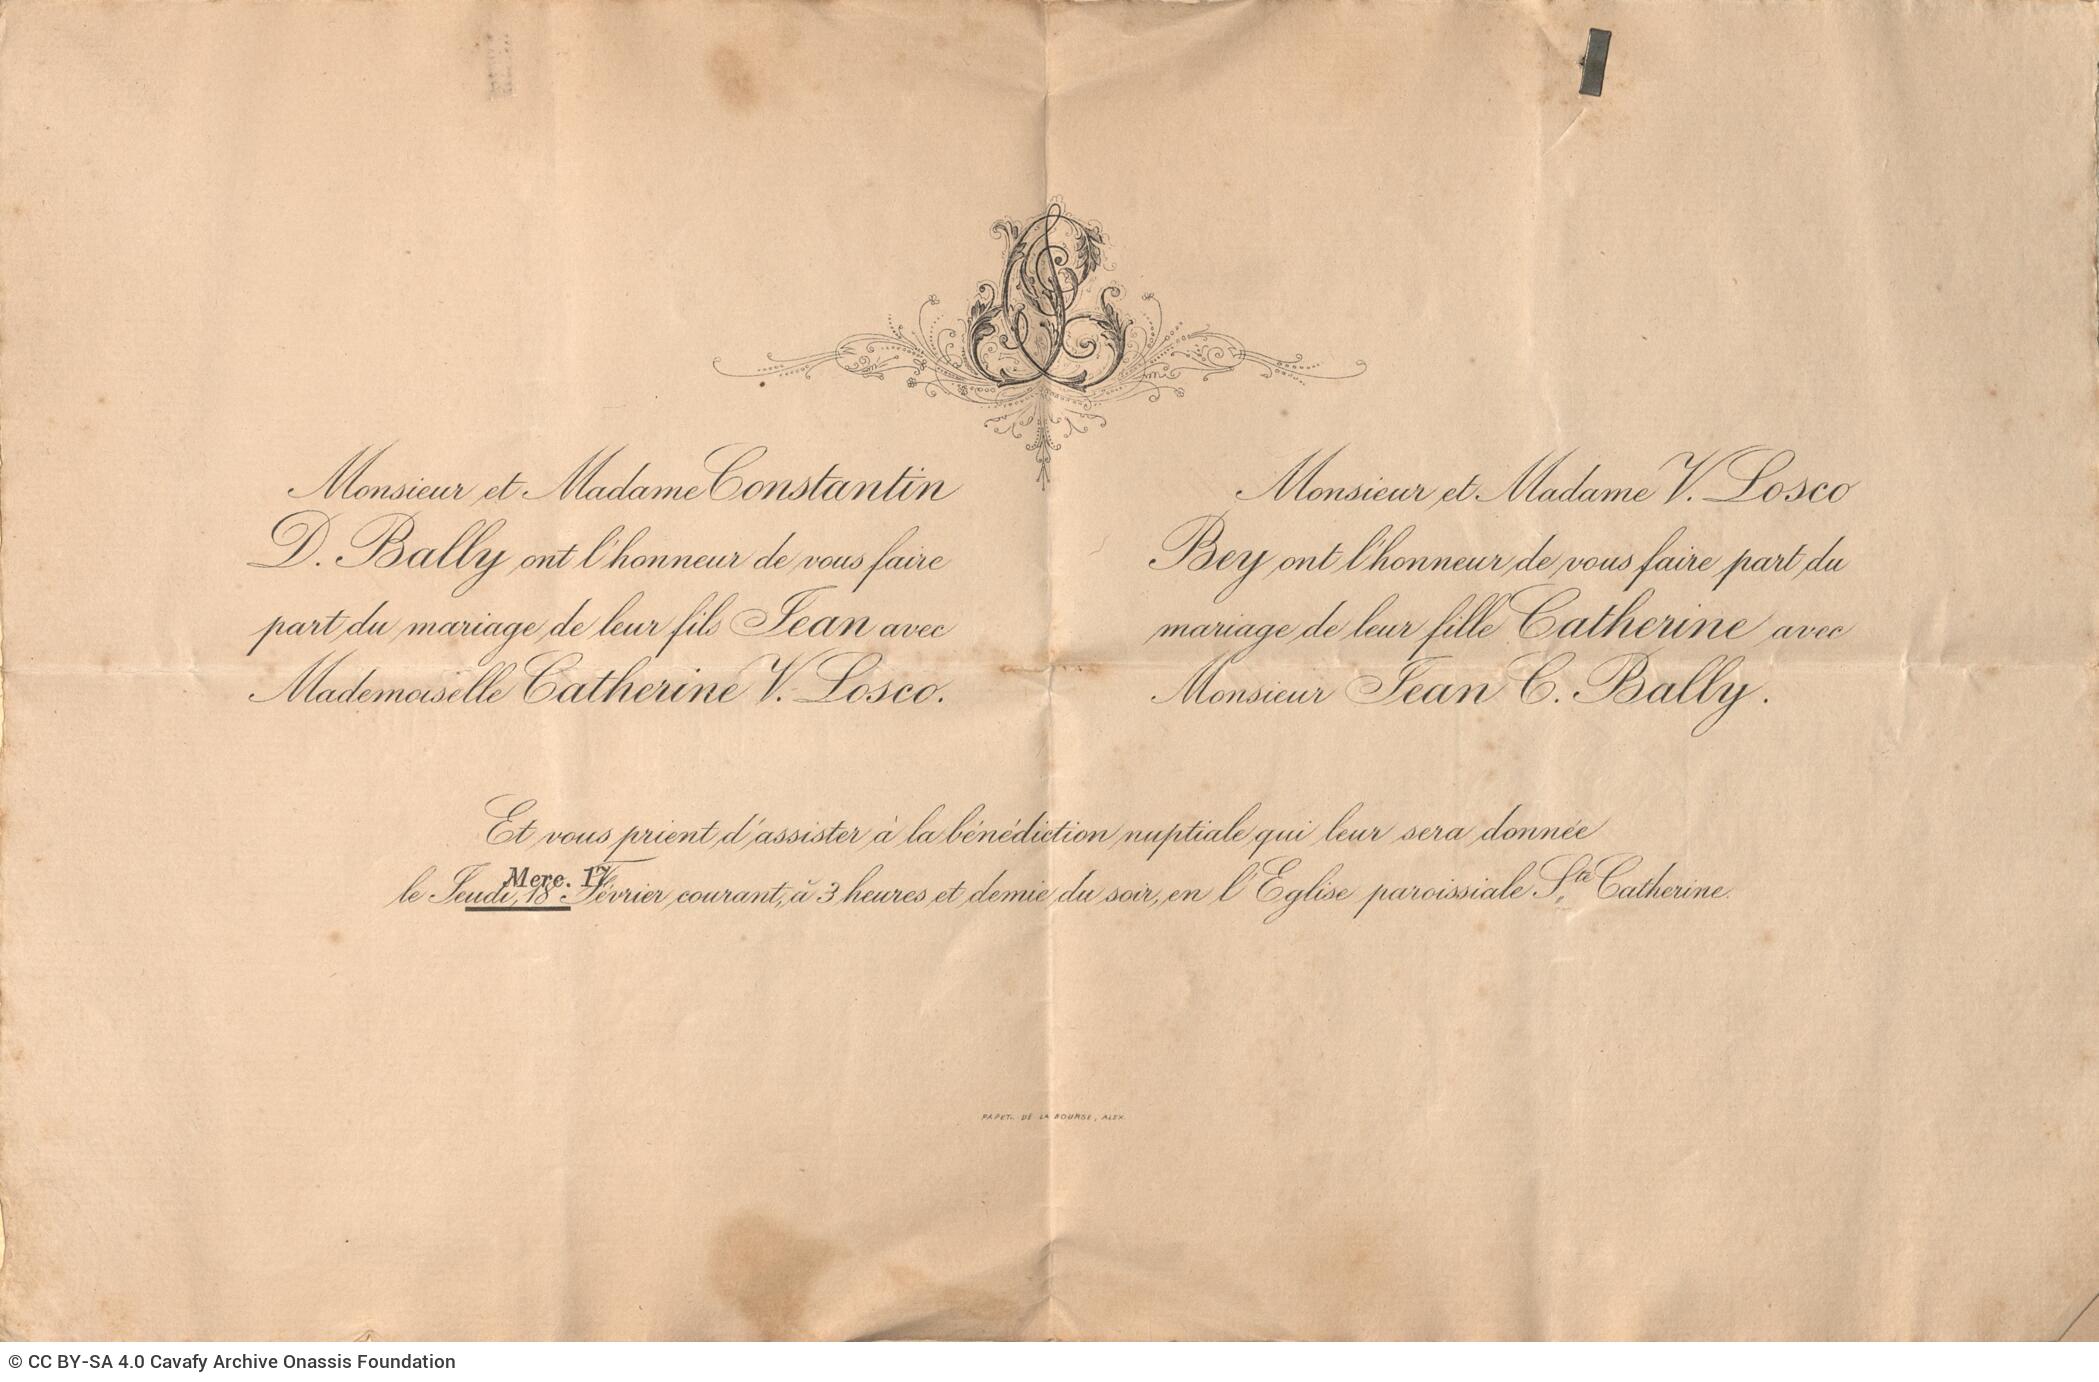 Monsieur et Madame Constantin
D. Bally ont l'honneur de vous faire
part du mariage de leur fils Jean avec
Mademoiselle Catherine V. Losco.
Monsieur et Madame V. Losco
Bey ont l'honneur de vous faire part du
mariage de leur fille Catherine avec
Monsieur Jean C. Bally.
Et vous prient d'assister à la bénédiction nuptiale qui leur sera donnée
Merc. 17
le Jeudi, 18 Février courant, à 3 heures et demie du soir, en l'Eglise paroissiale Ste Catherine.
PAPET. DE LA BOURSE, ALEX.
© CC BY-SA 4.0 Cavafy Archive Onassis Foundation